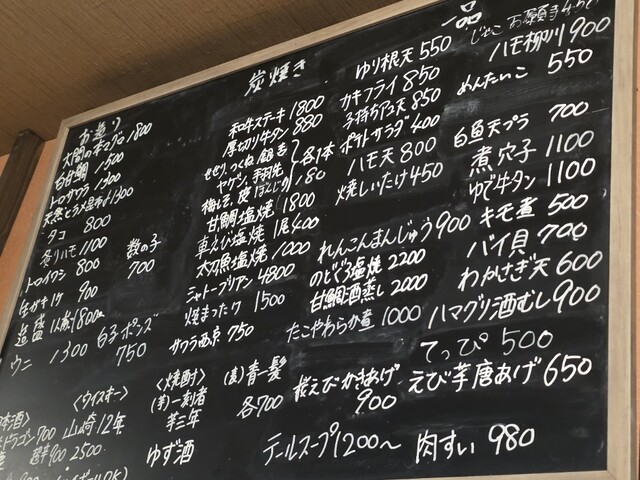 お造り
大間の本マグロ 1800
白甘鯛 1500
トロサワラ 1300
天然とらふぐ 1300
タコ 800
冬りハモ 1100
数の子 700
トロイワシ 800
生ガキ 1ケ 900
造盛 1人前 1800
白子ポンズ 750
ウニ 1300
炭焼き
和牛ステーキ 1800
厚切り牛タン 880
せせり、つくね、銀杏
ヤゲン、手羽先
梅しそ、皮、ぼんじり
各1本 180
甘鯛塩焼 1800
車えび塩焼 1尾 600
太刀魚塩焼 1000
シャトーブリアン 4800
焼まったけ 1500
サワラ西京 750
一品
ゆり根天 550
カキフライ 850
子持ちアユ天 850
ポテトサラダ 400
ハモ天 800
焼しいたけ 450
れんこんまんじゅう 900
のどぐろ塩焼 2200
甘鯛酒蒸し 2000
たこやわらか煮 1000
桜えびかきあげ 900
テールスープ 1200〜
じゃこ お万願寺 450
ハモ柳川 900
めんたいこ 550
白魚天プラ 700
煮穴子 1100
ゆで牛タン 1100
キモ煮 500
バイ貝 700
わかさぎ天 600
ハマグリ酒むし 900
てっぴ 500
えび芋唐あげ 650
肉すい 980
本酒〉
ドラゴン 700
〈ウイスキー〉
山崎12年
2500
〈焼酎〉
(芋)一刻者
芋三年
(麦)青一髪
各700
ゆず酒